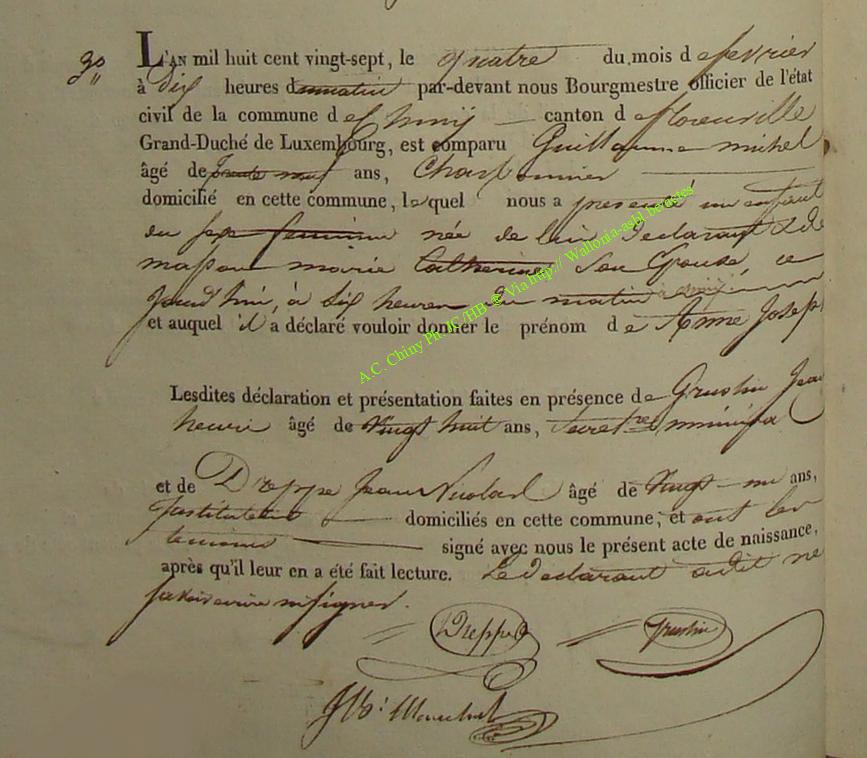 3°
L'AN mil huit cent vingt-sept, le quatre du mois de fevrier
à Dix heures du matin par-devant nous Bourgmestre officier de l'état
civil de la commune de Chiny canton de florenville
Grand-Duché de Luxembourg, est comparu Guillaume michel
âgé de trente neuf ans, Charbonnier
domicilié en cette commune, lequel nous a presenté un enfant
du sexe feminin née de lui Declarant & de
masson marie Catherine Son Epouse, ce
jourd'hui, à Six heures du matin à chiny
et auquel il a déclaré vouloir donner le prénom de Anne Josep
Lesdites déclaration et présentation faites en présence de Grustin Jean
henri âgé de vingt huit ans, Secretre municipa
et de Dreppe Jean Nicolas âgé de vingt un ans,
Instituteur domiciliés en cette commune, et ont les
temoins signé avec nous le présent acte de naissance,
après qu'il leur en a été fait lecture. Le Declarant a dit ne
savoir ecrire ni signer.
Dreppe Grustin
A.C. Chiny Ph JC/HB @ Via http:// Wallonia-asbl.be/actes